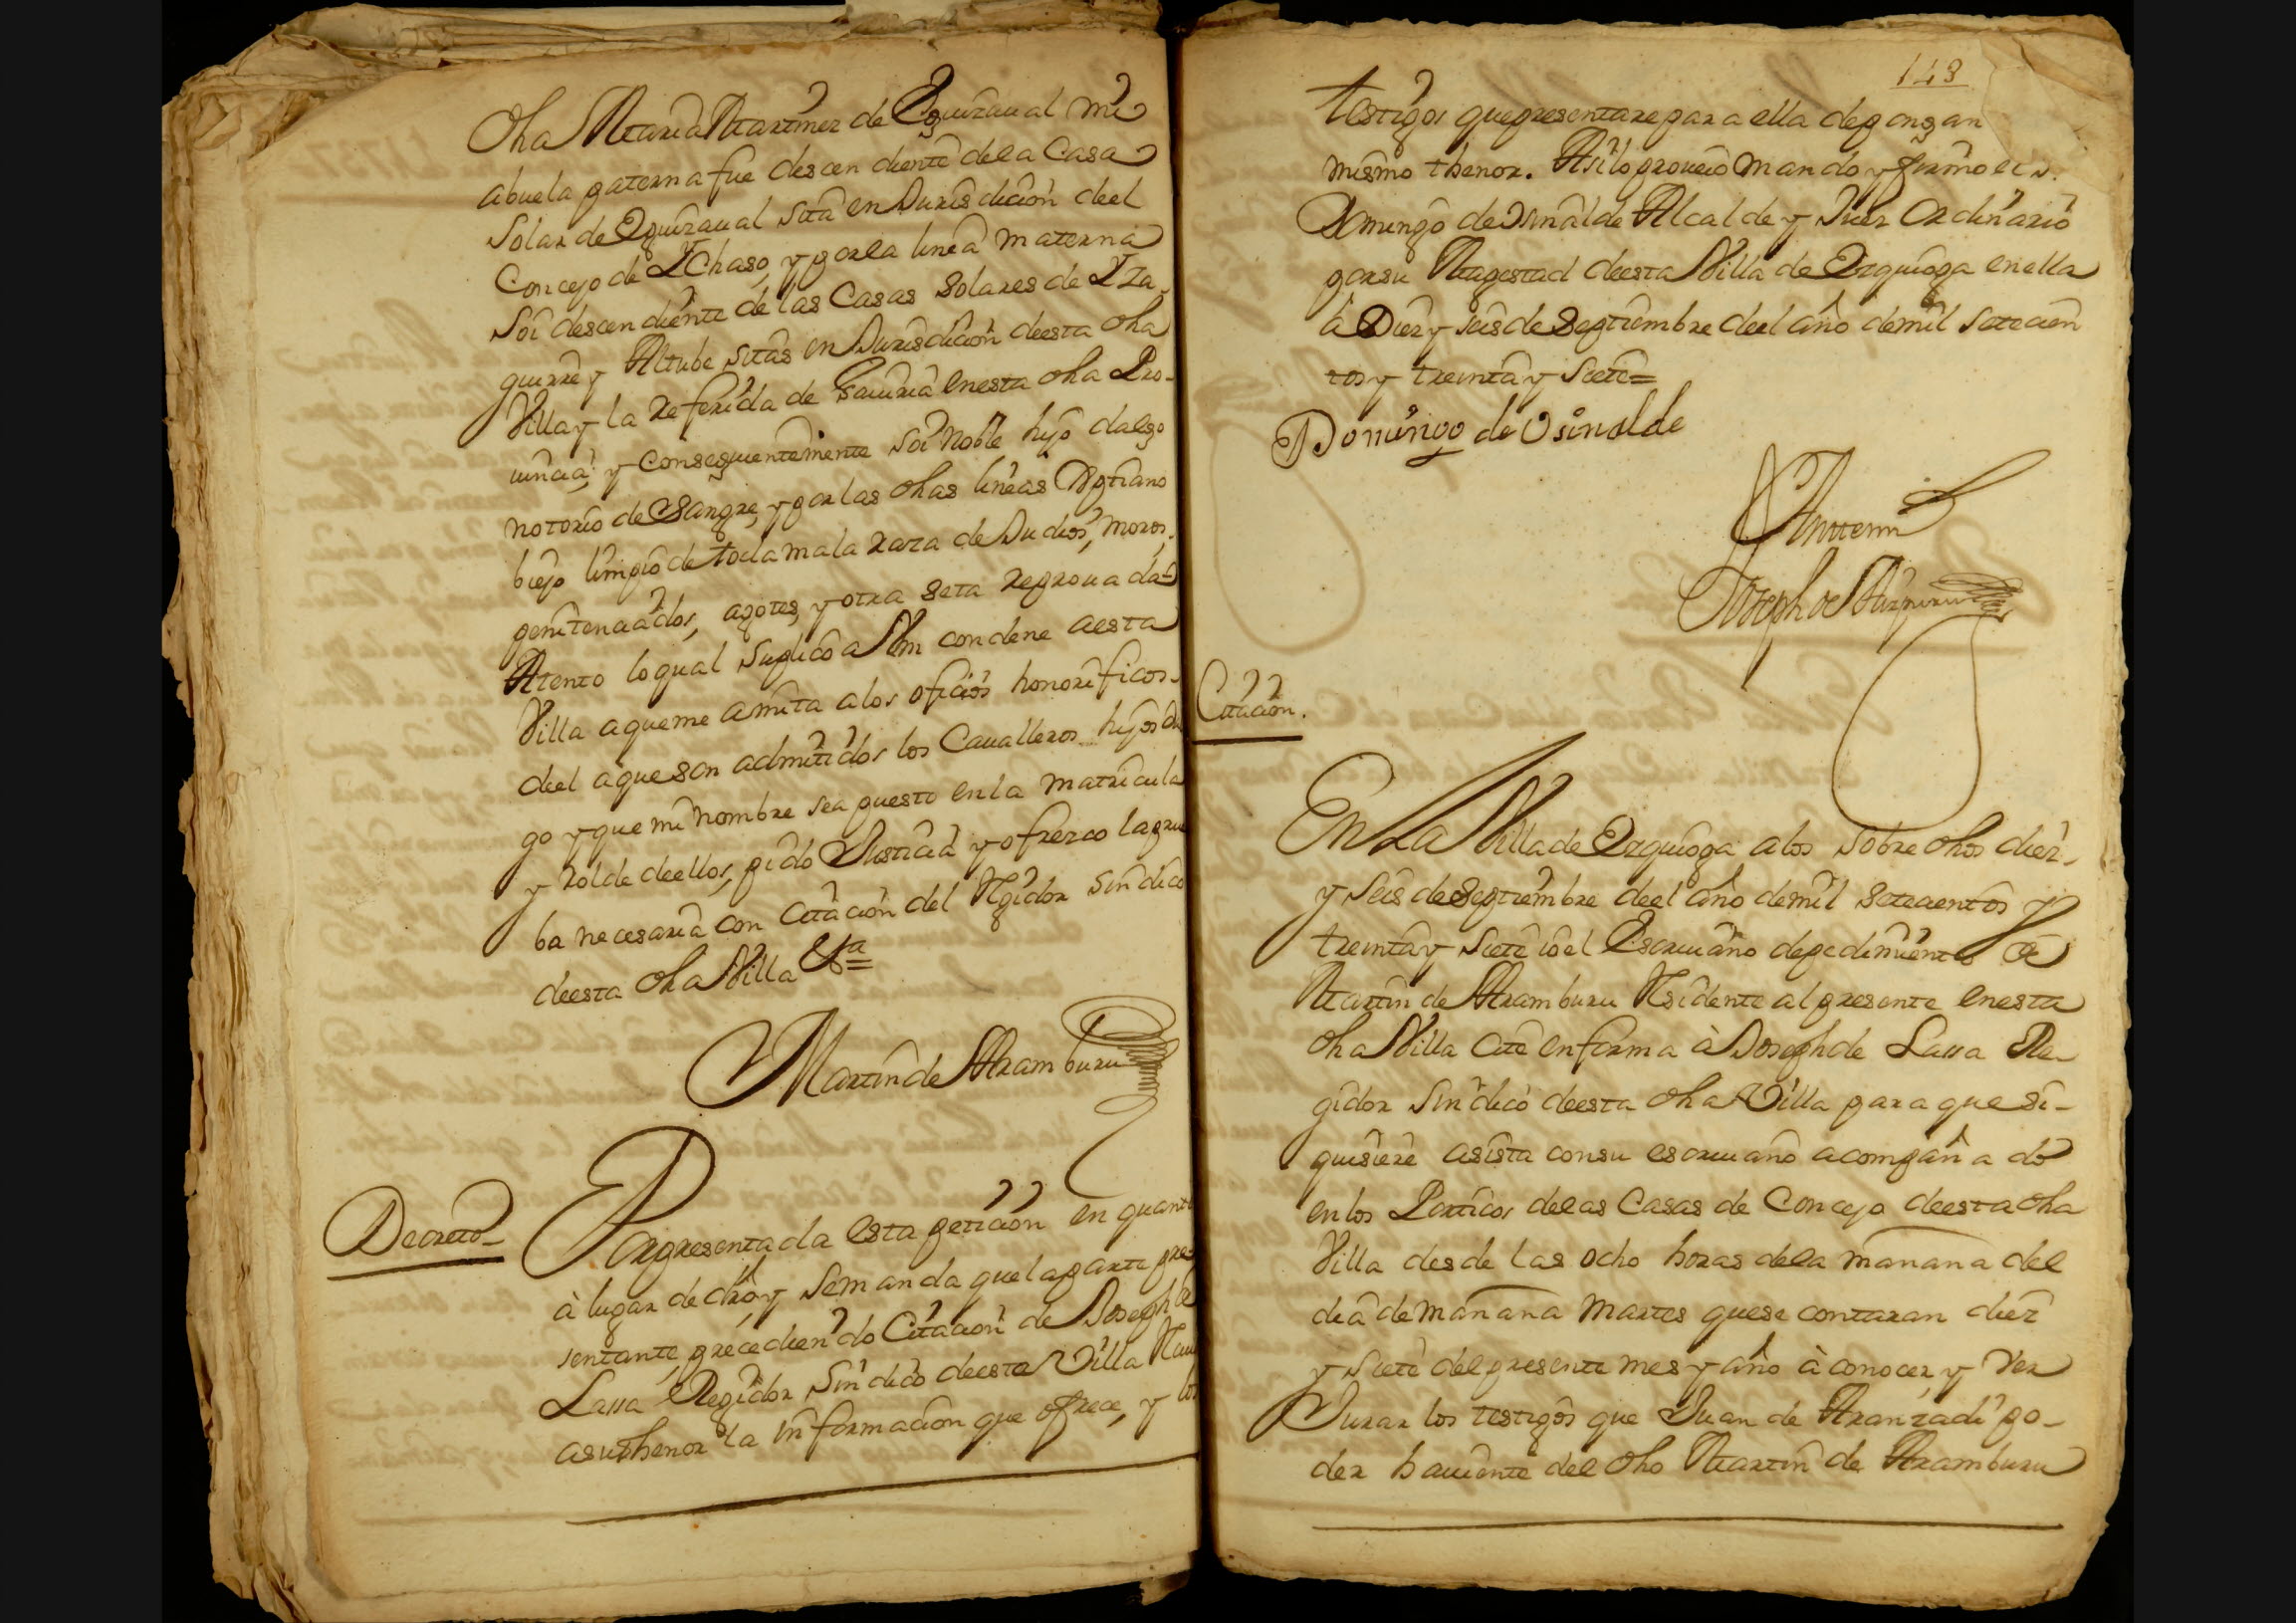 dha Maria Martinez de Eguizaual mi
abuela paterna fue descendiente dela Casa
Solar de Eguizaual sita en Jurisdicion deel
Concejo de Ychaso, y por la linea materna
soi descendiente de las Casas Solares de Yza-
guirre y Altube sitas en Jurisdicion deesta dha
Villa y la referida de enesta dha Pro-
uincia; y consequentemente soi Noble hijo dalgo
notorio de Sangre, y por las dhas lineas Xptiano
biejo limpio de toda mala raza de Judios, moros,
penitenciados, agotes, y otra seta reprouada
Atento lo qual suplico a Vm condene aesta
Villa aqueme amita alos oficios honorificos
deel aqueson admitidos los Caualleros hijos dal
go y que mi nombre sea puesto enla matricula
y rolde deellos, pido Justicia y ofrezco la prue
ba necesaria con Citacion del Rgidor sindico
deesta dha Villa &a
Martin de Aramburu
Decreto_
Por presentada esta peticion en quanto
à lugar de dro, y semanda que laparte pre-
sentante precediendo Citacion de Joseph de
Lassa Regidor Sindico deesta Villa
asuthenor la informacion que ofrece, y los
143
testigos quepresentare para ella depongan
mismo thenor. Asilo proueio mando y firmo el s.
Domingo de Osinalde Alcalde y Juez Ordinario
porsu Magestad deesta Villa de Ezquioga enella
à Diez y seis de Septiembre deel año demil setecien
tos y treinta y siete=
Domingo de Osinalde
Antemi
Joseph de Aizpuru
Citacion.
En La Villa de Ezquioga alos sobre dhos diez
y seis de Septiembre deel año demil setecientos y
treinta y siete io el Escriuano depedimiento de
Martin de Aramburu Rsidente al presente enesta
dha Villa cite enforma à Joseph de Lassa Re-
gidor Sindico deesta dha Villa para que si-
quisiere asista consu escriuano acompañado
enlos Porticos delas Casas de Concejo deesta dha
Villa desde las ocho horas dela mañana del
dia de mañana Martes quese contaran diez
y siete del presente mes y año à conocer, y ver
Jurar los testigos que Juan de Aranzadi po-
der hauiente del dho Martin de Aramburu